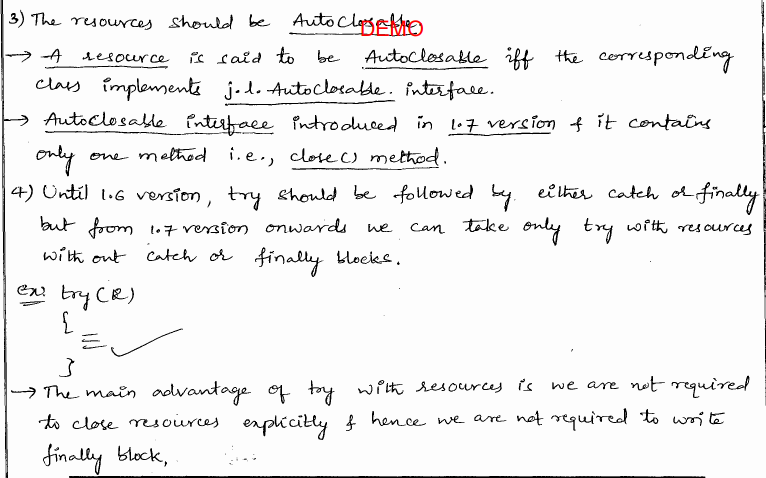 3) The resources should be AutoClosable.
DEMO
→ A resource is said to be AutoClosable iff the corresponding
class implements j.l.AutoClosable. interface.
→ AutoClosable interface introduced in 1.7 version & it contains
only one method i.e., close() method.
4) Until 1.6 version, try should be followed by either catch or finally
but from 1.7 version onwards we can take only try with resources
with out catch or finally blocks.
Ex: try(R)
{
}
→ The main advantage of try with resources is we are not required
to close resources explicitly & hence we are not required to write
finally block,